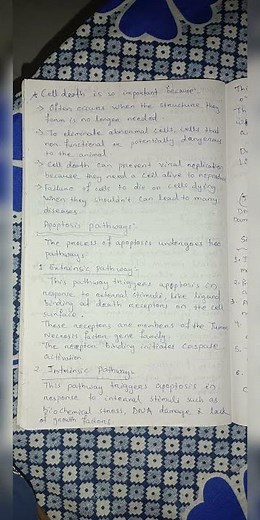 * Cell death is so important because:-
→ Often occurs when the structure they
form is no longer needed
→ To eliminate abnormal cells, cells that
non functional or potentially dangerous
to the animal
→ Cell death can prevent viral replication
because they need a cell alive to reproduce
→ Failure of cells to die or cells dying
when they shouldn't can lead to many
diseases
Apoptosis pathways:-
The process of apoptosis undergoes two
pathways
1. Extrinsic pathway:-
This pathway triggers apoptosis in
response to external stimuli, like ligand
binding at death receptors on the cell
surface.
These receptors are members of the Tumor
Necrosis factor gene family.
The receptor binding initiates caspase
activation
2. Intrinsic pathway:-
This pathway triggers apoptosis in
response to internal stimuli such as
biochemical stress, DNA damage & lack
of growth factors